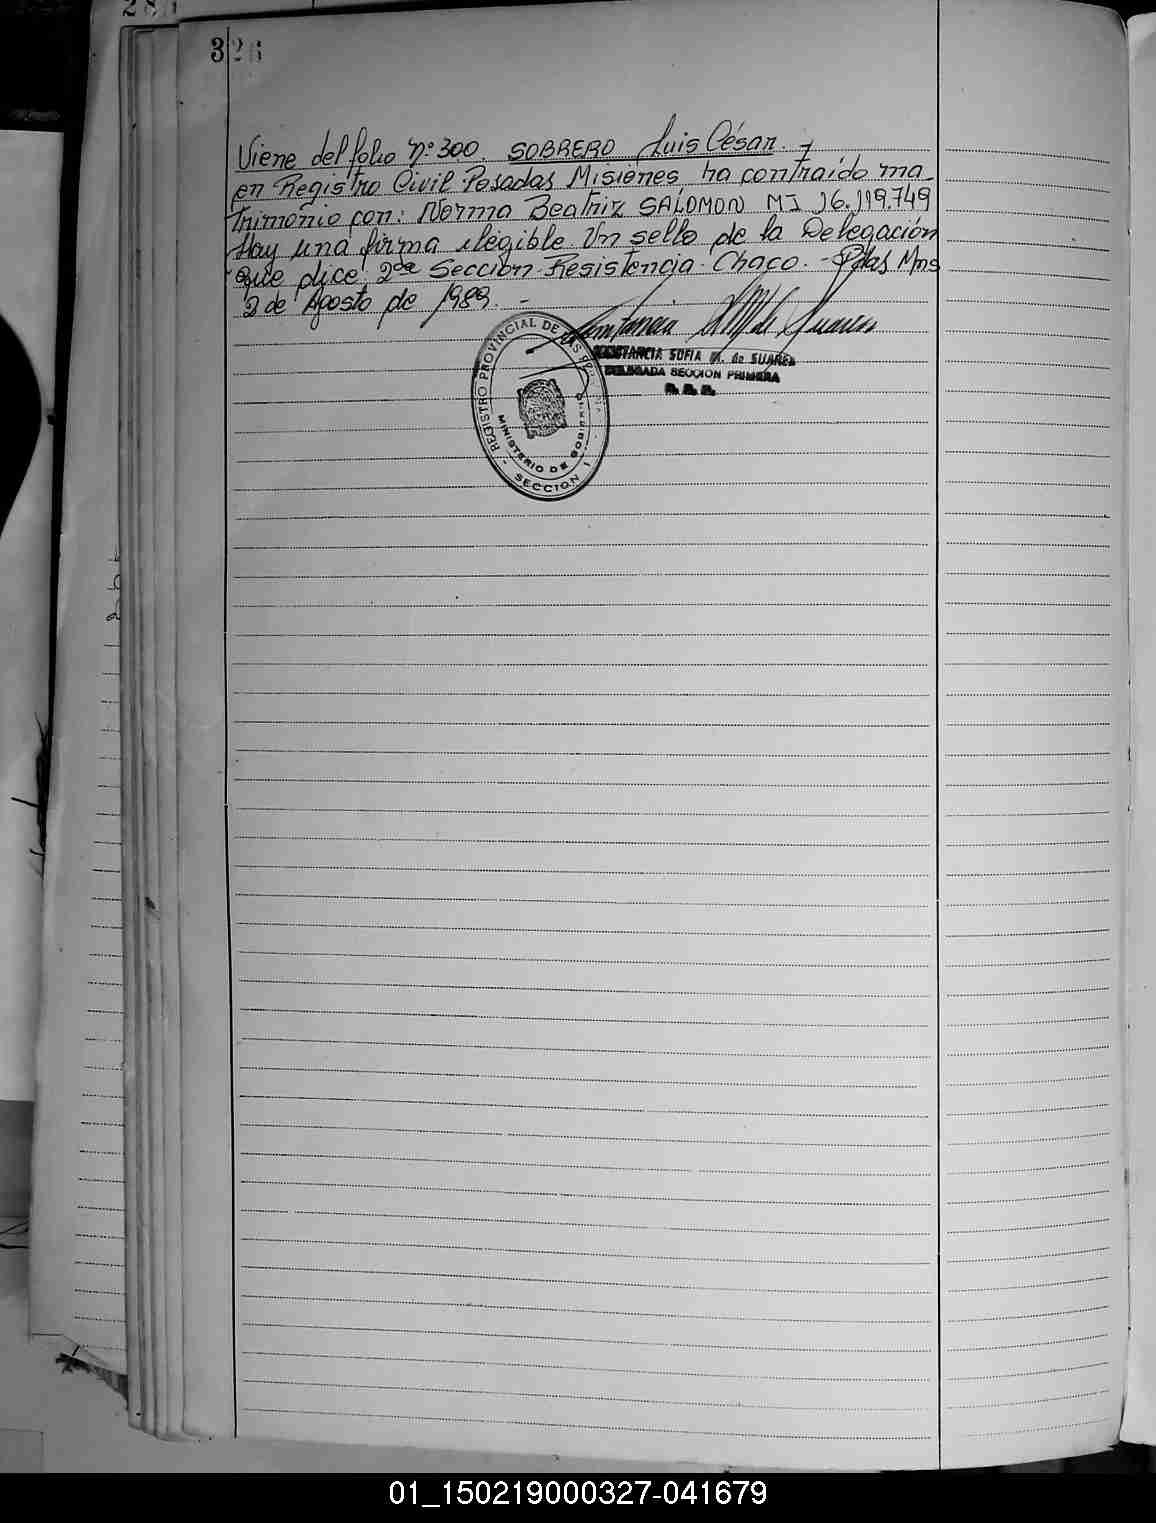 326
Viene del folio Nº 300. SOBRERO Luis César. -
en Registro Civil Posadas Misiones ha contraído ma_
trimonio con: Norma Beatriz SALOMON MI 16.119.749
Hay una firma ilegible. Un sello de la Delegación
que dice: 2da Sección - Resistencia - Chaco. - Pdas Mns
2 de Agosto de 1989. -
CONSTANCIA SOFIA M. de SUAREZ
DELEGADA SECCION PRIMERA
REGISTRO PROVINCIAL DE LAS
MINISTERIO DE GOBIERNO
SECCION 1
01_150219000327-041679